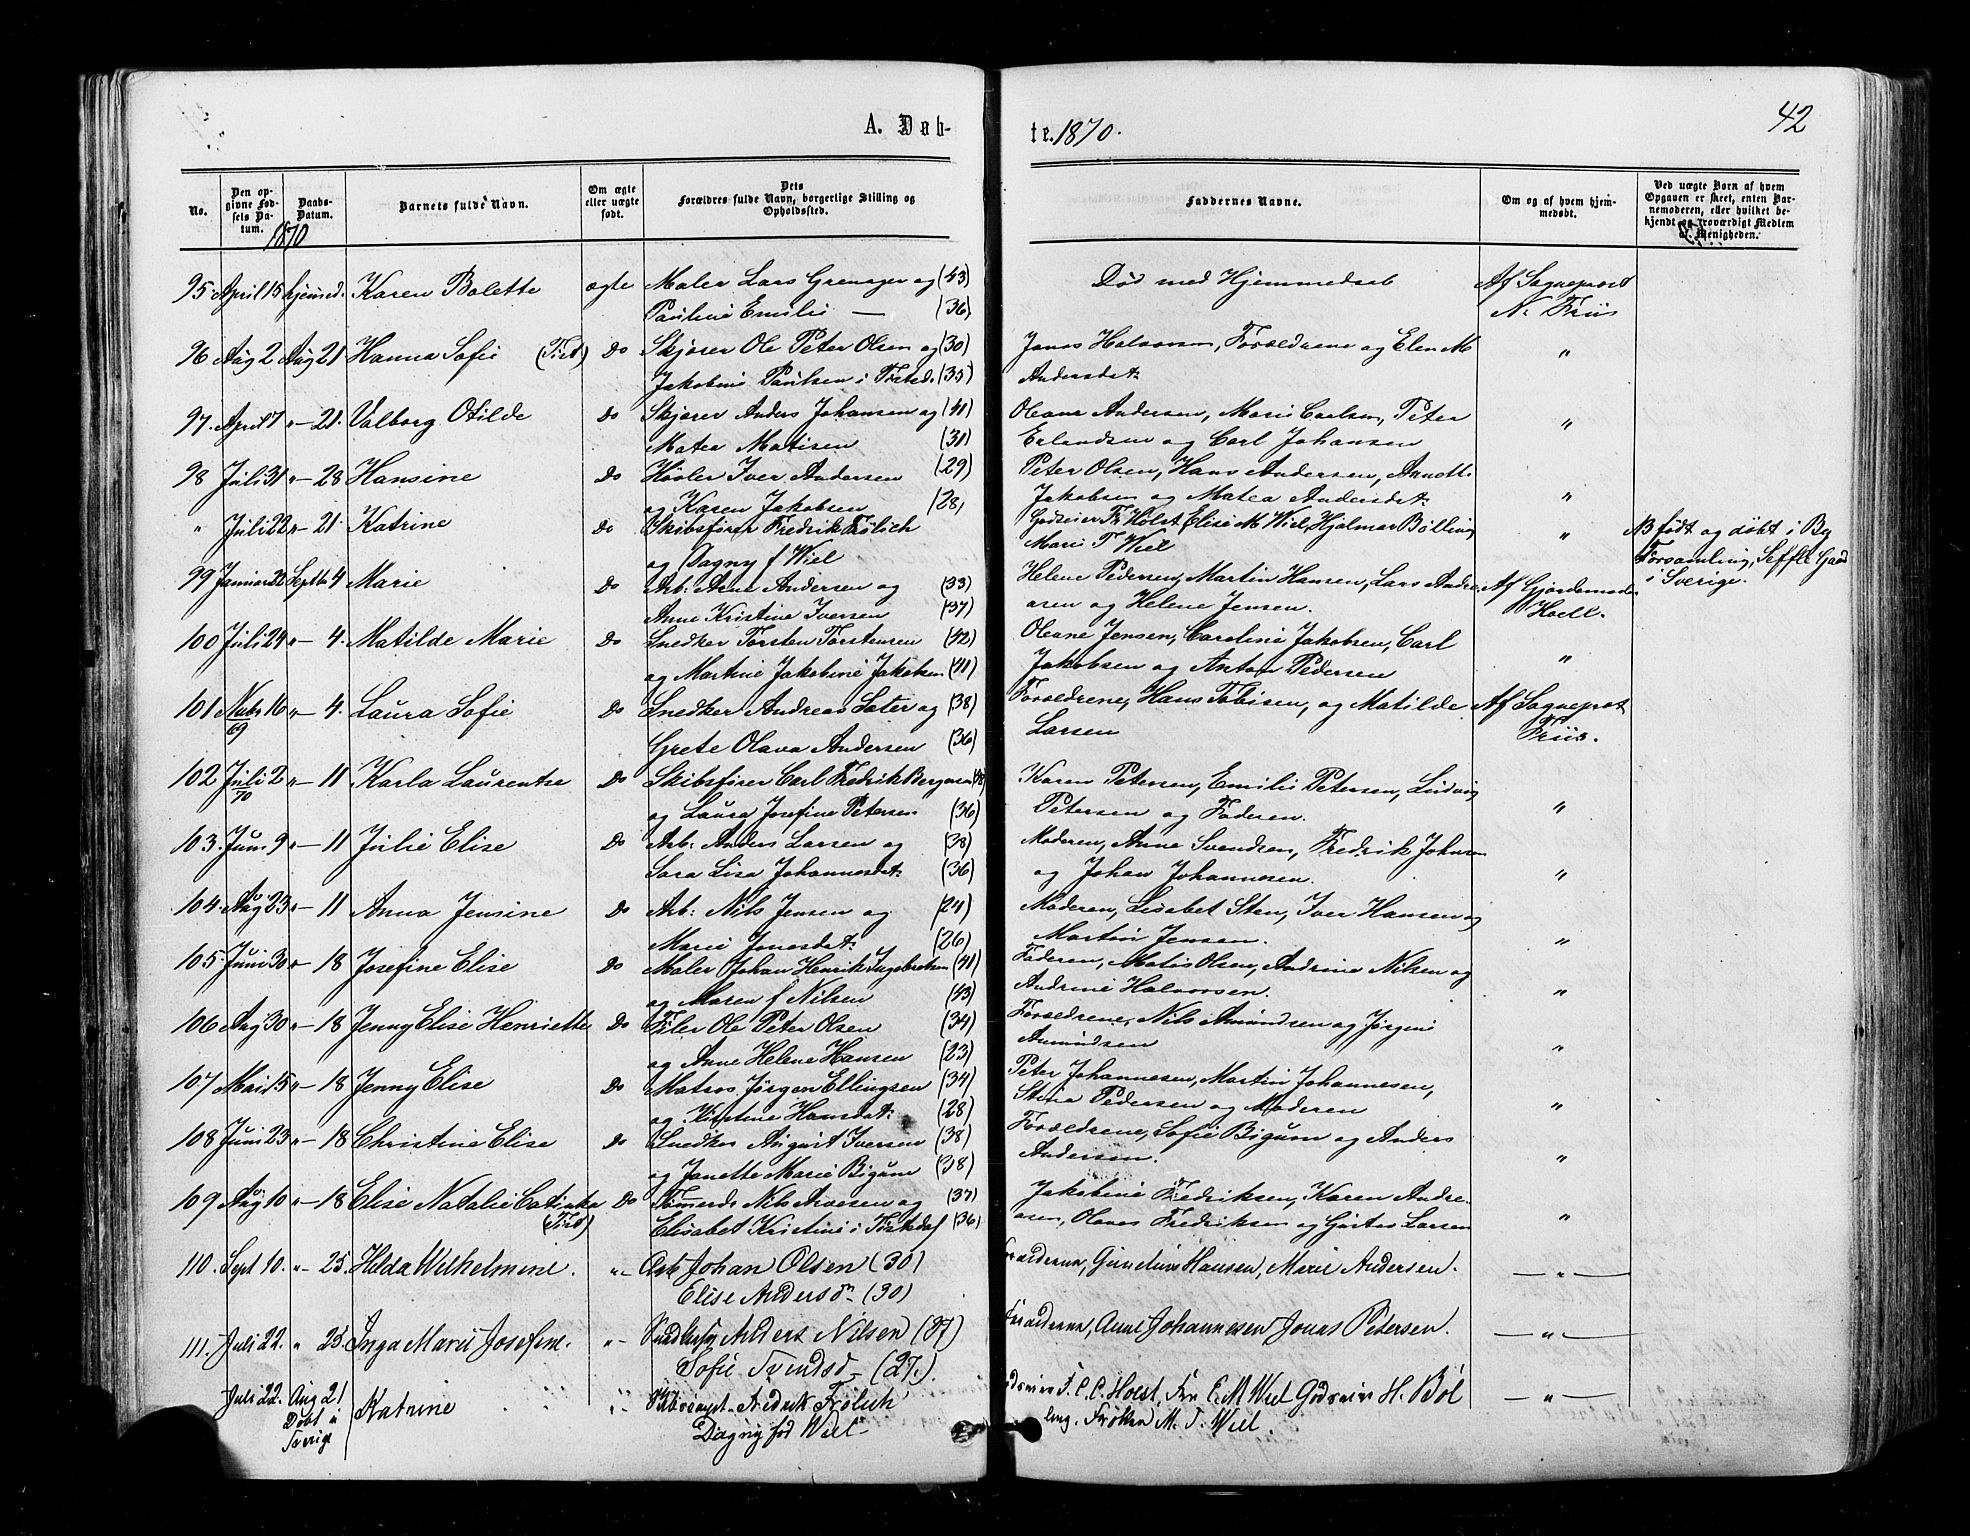 A. Døb-
te. 1870.
42
No.
Den op-
givne Fød-
sels Da-
tum.
Daabs-
Datum.
Barnets fulde Navn.
Om ægte
eller uægte
født.
Dets
Forældres fulde Navn, borgerlige Stilling og
Opholdssted.
Faddernes Navne.
Om og af hvem hjem-
medøbt.
Ved uægte Børn af hvem
Opgaven er skeet, enten Bar-
nemoderen, eller hvilket be-
kjendt og troværdigt Medlem
af Menigheden.
1870
95 April 15 hjemmed. Karen Bolette ægte Maler Lars Grenager og (43) Død med Hjemmedaab Af Sognepræst
Pauline Emilie — (36) N. Friis
96 Aug 2 Aug 21 Hanna Sofie (Tist) Do Skjører Ole Peter Olsen og (30) Jonas Halvorsen, Forældrene og Elen M „
Jakobine Paulsen i Tisted. (35) Andersdat:
97. April 7 „ – 21. Valborg Otilde Do Skjører Anders Johansen og (41) Oleane Andersen, Marie Carlsen, Peter „
Matea Matisen (31) Erlandsen og Carl Johansen
98 Juli 31 „ – 28 Hansine Do Høvler Iver Andersen (29) Peter Olsen, Hans Andersen, Annett.
og Karen Jakobsen (28) Jakobsen og Matea Andersdat: „
„ Juli 22 „ – 21. Katrine Do Skibsfører Fredrik Frölich Godseier Fr Holst, Elise M Wiel, Hjalmar Bølling „ NB født og døbt i By
og Dagny f Wiel Marie T Wiel Forsamling, Seffle Gaard
i Sverige.
99 Januar 22 Septbr 4 Marie Do Arb: Arne Andersen og (33) Helene Pedersen, Martin Hansen, Lars Andre- Af Gjordemoder
Anne Kristine Iversen (37) asen og Helene Jensen. Hoell.
100 Juli 24 „ – 4. Matilde Marie Do Snedker Torsten Torstensen (42) Oleane Jensen, Caroline Jakobsen, Carl
og Martine Jakobine Jakobsen (41) Jakobsen og Anton Pedersen „
101 Novbr 16 „ – 4. Laura Sofie Do Snedker Andreas Sater og (38) Forældrene, Hans Tobisen, og Matilde Af Sognepræst
69 Grete Olava Andersen (36) Larsen Friis.
102 Juli 2 „ – 11 Karla Laurentse Do Skibsfører Carl Fredrik Bergersen (48) Karen Petersen, Emilie Petersen, Ludvig
70 og Laura Josefine Petersen (36) Petersen og Faderen. „
103. Juni 9 „ – 11 Julie Elise Do Arb: Anders Larsen og (38) Moderen, Anne Svendsen, Fredrik Johnsen
Sara Lisa Johannesdat: (36) og Johan Johannesen. „
104. Aug 23 „ – 11 Anna Jensine Do Arb: Nils Jensen og (24) Moderen, Lisabet Sten, Iver Hansen og
Marie Jonasdat: (26) Martin Jensen. „
105. Juni 30 „ – 18 Josefine Elise Do Maler Johan Henrik Ingebretsen (41) Faderen, Matis Olsen, Andrine Nilsen og
og Maren f Nilsen (43) Andrine Halvorsen. „
106 Aug 30 „ – 18 Jenny Elise Henriette Do Filer Ole Peter Olsen (34) Forældrene, Nils Amundsen og Jørgine
og Anne Helene Hansen (23) Amundsen „
107 Mai 15 „ – 18 Jenny Elise Do Matros Jørgen Ellingsen (34) Peter Johannesen, Martin Johannesen,
og Kirstine Hansdat: (28) Stina Pedersen og Moderen „
108 Juni 23 „ – 18 Christine Elise Do Snedker August Iversen (38) Forældrene, Sofie Bigum og Anders
og Janette Marie Bigum (38) Andersen. „
109 Aug 10 „ – 18 Elise Natalie Catinka Do Tømmerd: Nils Aroesen og (37) Jakobine Fredriksen, Karen Andre-
(Tist) Elisabet Kristine i Tistedal (36) asen, Olaves Fredriksen og Gustav Larsen „
110. Sept 10. „ – 25. Hilda Wilhelmine. „ – Arb Johan Olsen (30) Forældrene, Gundius Hansen, Marie Andersen. — „ —
Elise Andersdn (30)
111. Juli 22. „ 25. Inga Marie Josefine. „ – Anders Nilsen (27) Forældrene, Anne Johannesen Jonas Petersen. — „ —
Sofie Svendsd – (27).
Juli 22. Aug 21 Katrine „ – Fredrik Frölich Godseier F. C. C. Holst, Fru E. M Wiel Godseier H. Böl — „ —
Døbt i Dagny fød Wiel – ling. Frøken M. T. Wiel.
Sverige